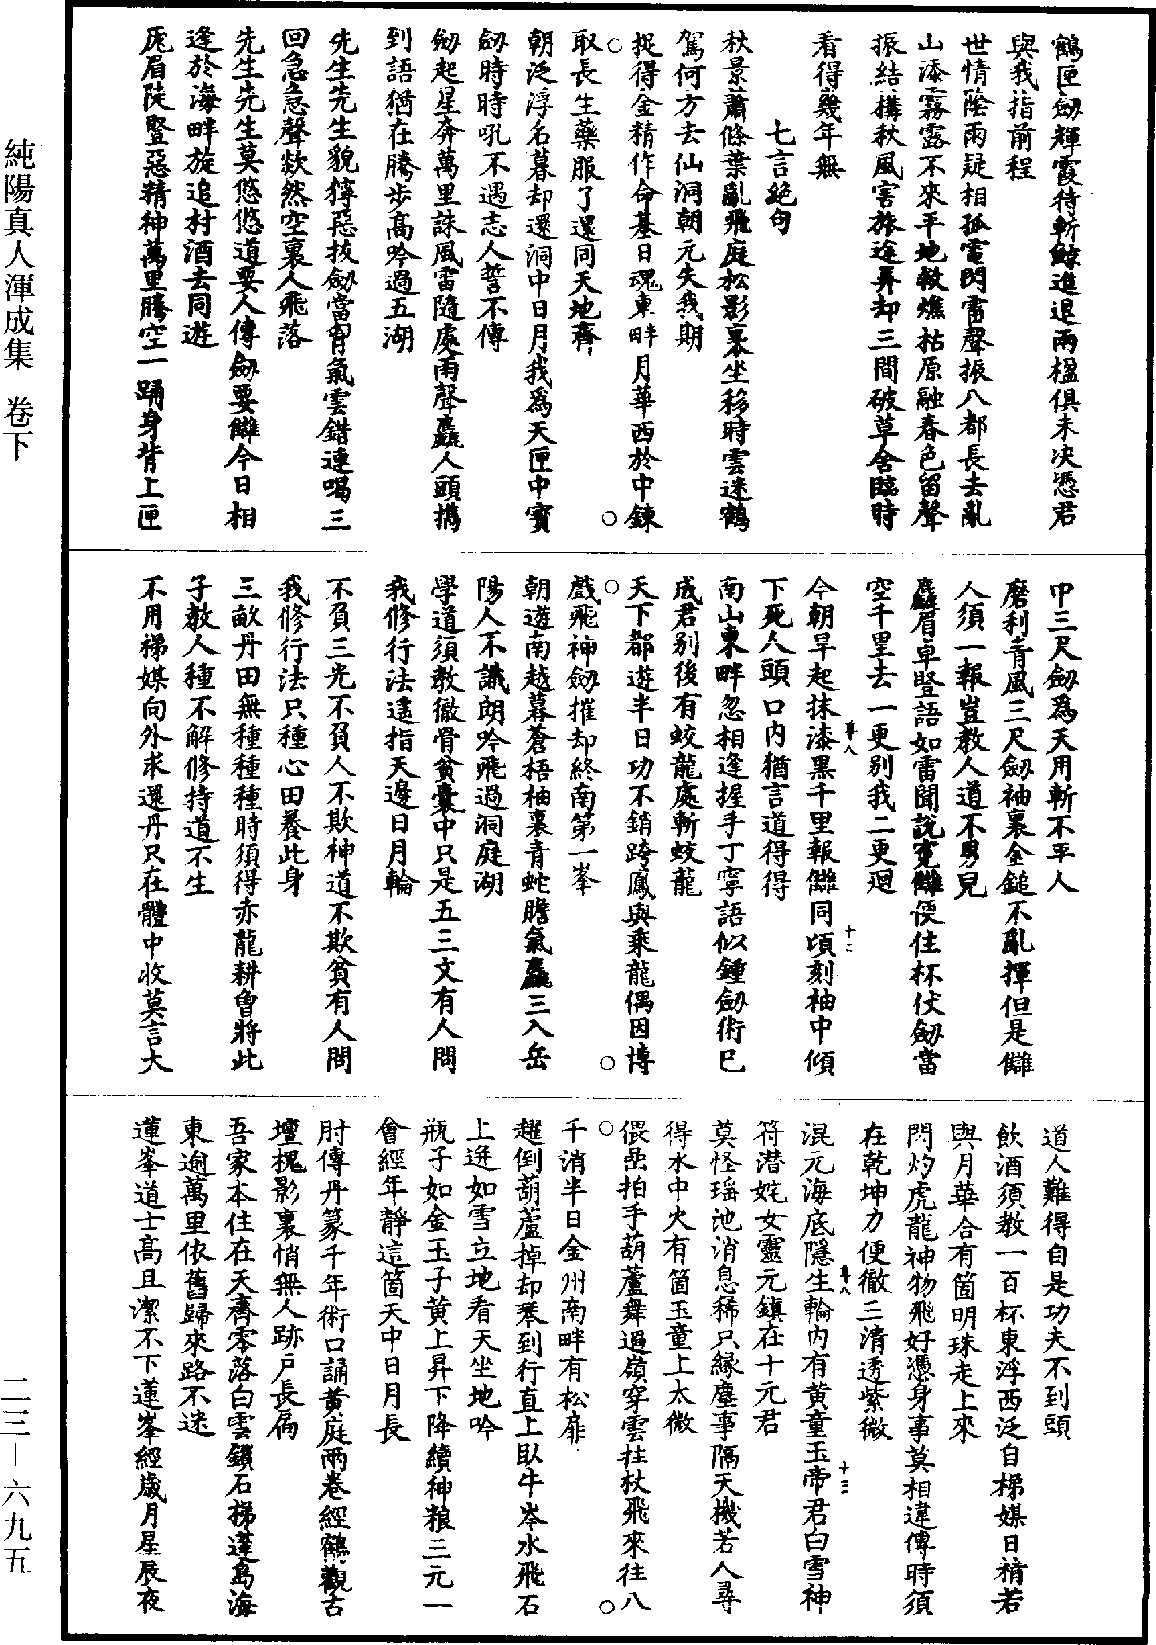 鶴匣劒輝霞待斬鯨進退兩楹俱未決憑君
與我指前程
世情陰雨疑相孤電閃雷聲振八都長去亂
山漆霧露不來平地救燋枯原融春色留聲
振結搆秋風害旅途弄却三間破草舍臨時
看得幾年無
七言絕句
秋景蕭條葉亂飛庭松影裏坐移時雲迷鶴
駕何方去仙洞朝元失我期
捉得金精作命基日魂東畔月華西於中鍊
取長生藥服了還同天地齊
朝泛浮名暮却還洞中日月我爲天匣中寶
劒時時吼不遇志人誓不傳
劒起星奔萬里誅風雷隨處雨聲麤人頭擕
到語猶在騰步高吟過五湖
先生先生貌獰惡拔劒當胷氣雲錯連喝三
回急急聲欻然空裏人飛落
先生先生莫悠悠道要人傳劒要讎今日相
逢於海畔旋追村酒去同遊
厖眉陡豎惡精神萬里騰空一踊身背上匣
中三尺劒爲天用斬不平人
磨利青風三尺劒袖裏金鎚不亂揮但是讎
人須一報豈教人道不男兒
麤眉卓豎語如雷聞說寃讎便住杯仗劒當
空千里去一更別我二更迴
今朝早起抹漆黑千里報讎同頃刻袖中傾
下死人頭口內猶言道得得
南山東畔忽相逢握手丁寧語似鍾劒術已
成君别後有蛟龍處斬蛟龍
天下都遊半日功不銷跨鳳與乘龍偶因博
戲飛神劒摧却終南第一峯
朝遊南越暮蒼梧柚裏青蛇膽氣麤三入岳
陽人不識朗吟飛過洞庭湖
學道須教徹骨貧囊中只是五三文有人問
我修行法遥指天邊日月輪
不負三光不負人不欺神道不欺貧有人問
我修行法只種心田養此身
三畝丹田無種種種時須得赤龍耕曾將此
子教人種不解修持道不生
不用梯媒向外求還丹只在體中收莫言大
道人難得自是功夫不到頭
飲酒須教一百杯東浮西泛自梯媒日精若
與月華合有箇明珠走上來
閃灼虎龍神物飛好憑身事莫相違傳時須
在乾坤力便徹三清透紫微
混元海底隱生輪內有黄童玉帝君白雪神
符潜姹女靈元鎮在十元君
莫怪瑶池消息稀只緣塵事隔天機若人尋
得水中火有箇玉童上太微
偎岊拍手葫蘆舞過嶺穿雲拄杖飛來往八
千消半日金州南畔有松扉
趯倒葫蘆掉却琴到行直上卧牛岑水飛石
上迸如雪立地看天坐地吟
瓶子如金玉子黄上昇下降續神粮三元一
會經年靜這箇天中日月長
肘傳丹篆千年術口誦黄庭兩卷經鶴觀古
壇槐影裏悄無人跡戶長扃
吾家本住在天齊零落白雲鎻石梯蓬島海
東逾萬里依舊歸來路不迷
蓮峯道士高且潔不下蓮峯經歲月星辰夜
純陽真人渾成集 卷下
二三—六九五